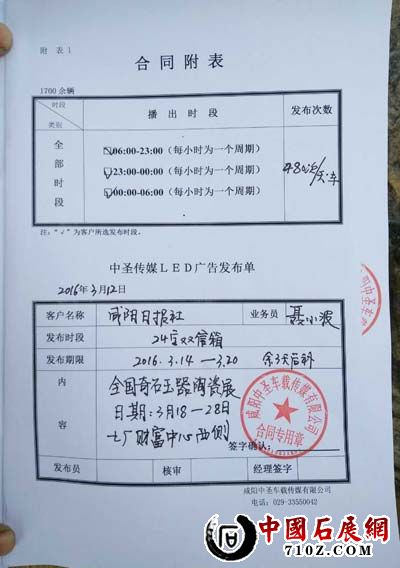 附 表 1
合 同 附 表
1700 余辆
时段
类别
播 出 时 段
发布次数
全部时段
06:00-23:00（每小时为一个周期）
23:00-00:00（每小时为一个周期）
00:00-06:00（每小时为一个周期）
480次/天·车
注: "√"为客户所选发布时段。
中圣传媒LED广告发布单
2016年3月12日
客户名称
咸阳日报社
业务员
聂小波
发布时段
24字双信箱
发布期限
2016.3.14—3.20 余3天后补
内容
全国奇石玉器陶瓷展
日期:3月18—28日
七厂财富中心西侧
签字确认:
咸阳中圣车载传媒有限公司
合同专用章
发布员
核审
经理签字
咸阳中圣车载传媒有限公司
电话:029-33550042
中國石展網
710Z.com